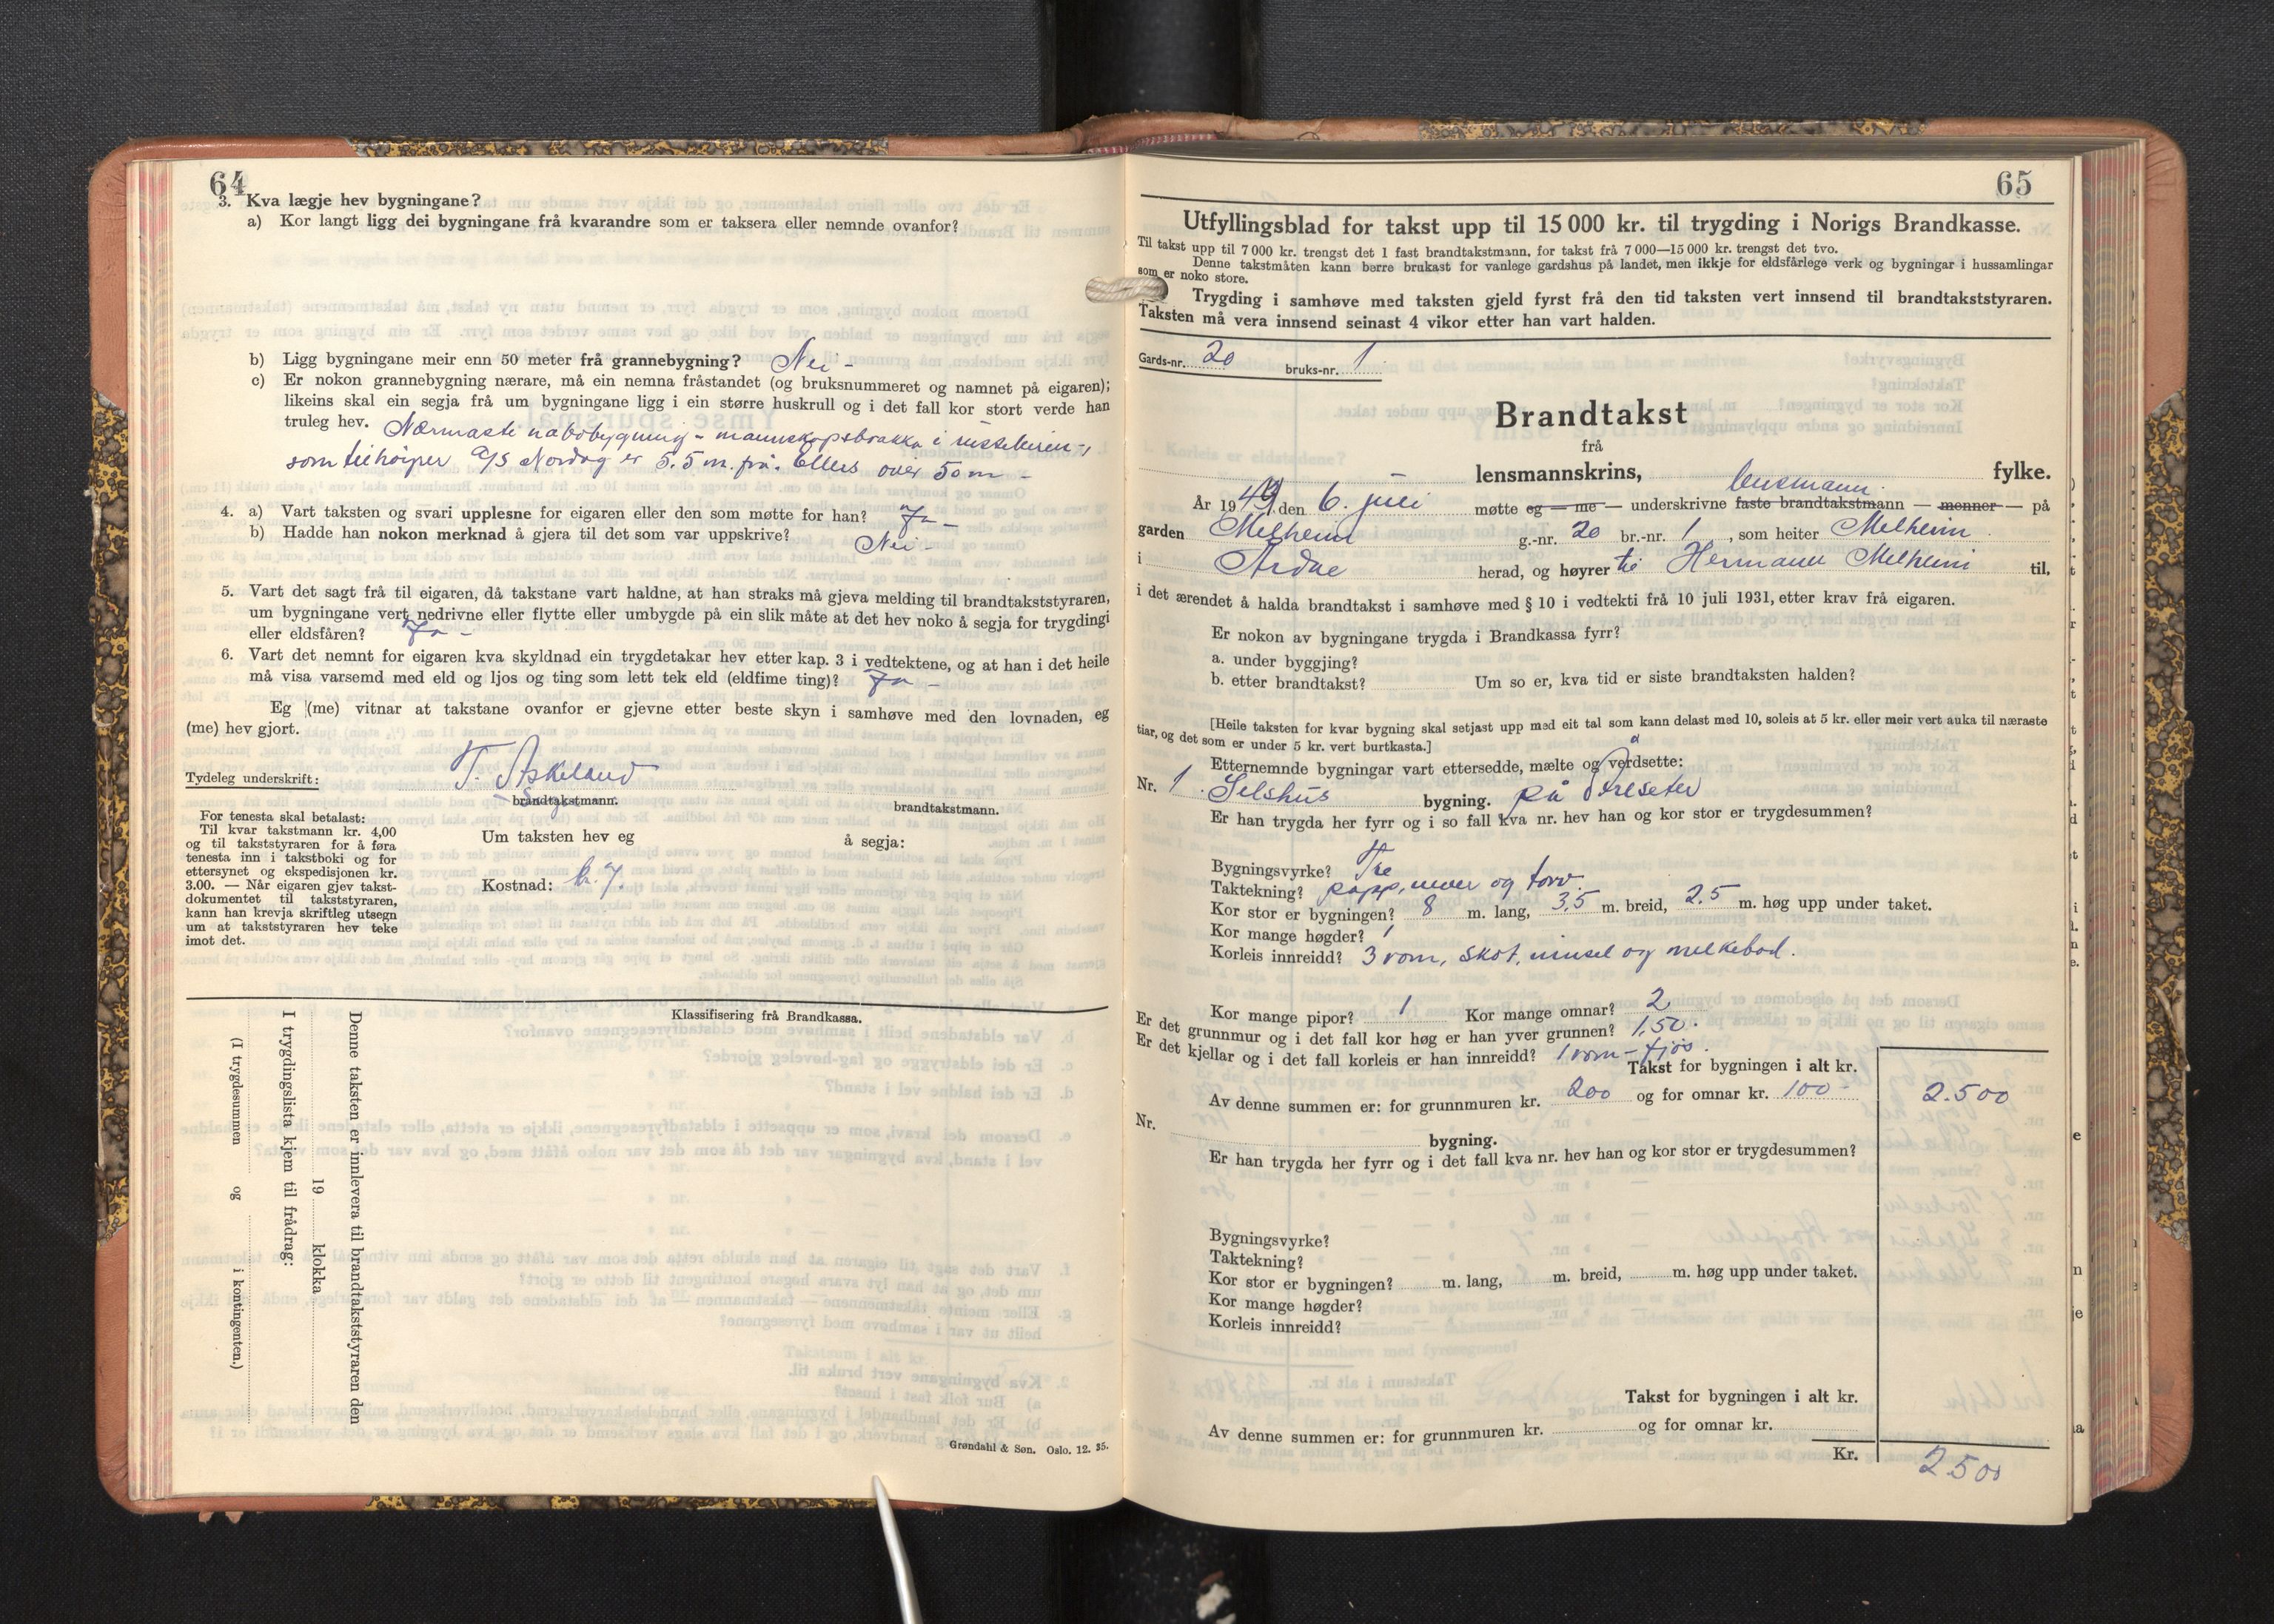 64
3. Kva lægje hev bygningane?
a) Kor langt ligg dei bygningane frå kvarandre som er taksera eller nemnde ovanfor?
b) Ligg bygningane meir enn 50 meter frå grannebygning? Nei -
c) Er nokon grannebygning nærare, må ein nemna fråstandet (og bruksnummeret og namnet på eigaren);
likeins skal ein segja frå um bygningane ligg i ein større huskrull og i det fall kor stort verde han
truleg hev. Nærmaste nabobygning - mannskapsbrakka i
som tilhøyrer A/S Nordag er 5.5 m. frå. Ellers over 50 m -
4. a) Vart taksten og svari upplesne for eigaren eller den som møtte for han? Ja -
b) Hadde han nokon merknad å gjera til det som var uppskrive? Nei -
5. Vart det sagt frå til eigaren, då takstane vart haldne, at han straks må gjeva melding til brandtakststyraren,
um bygningane vert nedrivne eller flytte eller umbygde på ein slik måte at det hev noko å segja for trygdingi
eller eldsfåren? Ja -
6. Vart det nemnt for eigaren kva skyldnad ein trygdetakar hev etter kap. 3 i vedtektene, og at han i det heile
må visa varsemd med eld og ljos og ting som lett tek eld (eldfime ting)? Ja -
Eg (me) vitnar at takstane ovanfor er gjevne etter beste skyn i samhøve med den lovnaden, eg
(me) hev gjort.
Tydeleg underskrift: T. Askeland
brandtakstmann. brandtakstmann.
For tenesta skal betalast:
Til kvar takstmann kr. 4,00
og til takststyraren for å føra
tenesta inn i takstboki og for
ettersynet og ekspedisjonen kr.
3.00. — Når eigaren gjev takst-
dokumentet til takststyraren,
kann han krevja skriftleg utsegn
um at takststyraren hev teke
imot det.
Um taksten hev eg å segja:
Kostnad: kr. 7.
Klassifisering frå Brandkassa.
Denne taksten er innlevera til brandtakststyraren den
19 klokka
I trygdingslista kjem til frådrag:
(I trygdesummen og i kontingenten.)
Grøndahl & Søn. Oslo. 12. 35.
65
Utfyllingsblad for takst upp til 15 000 kr. til trygding i Norigs Brandkasse.
Til takst upp til 7 000 kr. trengst det 1 fast brandtakstmann, for takst frå 7 000—15 000 kr. trengst det tvo.
Denne takstmåten kann berre brukast for vanlege gardshus på landet, men ikkje for eldsfårlege verk og bygningar i hussamlingar
som er noko store.
Trygding i samhøve med taksten gjeld fyrst frå den tid taksten vert innsend til brandtakststyraren.
Taksten må vera innsend seinast 4 vikor etter han vart halden.
Gards-nr. 20 bruks-nr. 1
Brandtakst
frå
lensmannskrins, fylke.
År 1949, den 6. juli møtte eg — me — underskrivne lensmann faste brandtakstmann — menner — på
garden Melheim g.-nr. 20 br.-nr. 1, som heiter Melheim
i Årdal herad, og høyrer til Hermann Melheim til,
i det ærendet å halda brandtakst i samhøve med § 10 i vedtekti frå 10 juli 1931, etter krav frå eigaren.
Er nokon av bygningane trygda i Brandkassa fyrr?
a. under byggjing?
b. etter brandtakst? Um so er, kva tid er siste brandtaksten halden?
[Heile taksten for kvar bygning skal setjast upp med eit tal som kann delast med 10, soleis at 5 kr. eller meir vert auka til næraste
tiar, og det som er under 5 kr. vert burtkasta.]
Etternemnde bygningar vart ettersedde, mælte og verdsette:
Nr. 1. Selshus bygning. på
Er han trygda her fyrr og i so fall kva nr. hev han og kor stor er trygdesummen?
Bygningsvyrke? Tre
Taktekning? papp, never og torv.
Kor stor er bygningen? 8 m. lang, 3,5 m. breid, 2,5 m. høg upp under taket.
Kor mange høgder? 1
Korleis innreidd? 3 rom, skot, innsel og melkebod.
Kor mange pipor? 1 Kor mange omnar? 2
Er det grunnmur og i det fall kor høg er han yver grunnen? 1,50.
Er det kjellar og i det fall korleis er han innreidd? 1 rom - fjøs.
Takst for bygningen i alt kr.
Av denne summen er: for grunnmuren kr. 200 og for omnar kr. 100 - 2.500
Nr. bygning.
Er han trygda her fyrr og i det fall kva nr. hev han og kor stor er trygdesummen?
Bygningsvyrke?
Taktekning?
Kor stor er bygningen? m. lang, m. breid, m. høg upp under taket.
Kor mange høgder?
Korleis innreidd?
Takst for bygningen i alt kr.
Av denne summen er: for grunnmuren kr. og for omnar kr.
Kr. 2500